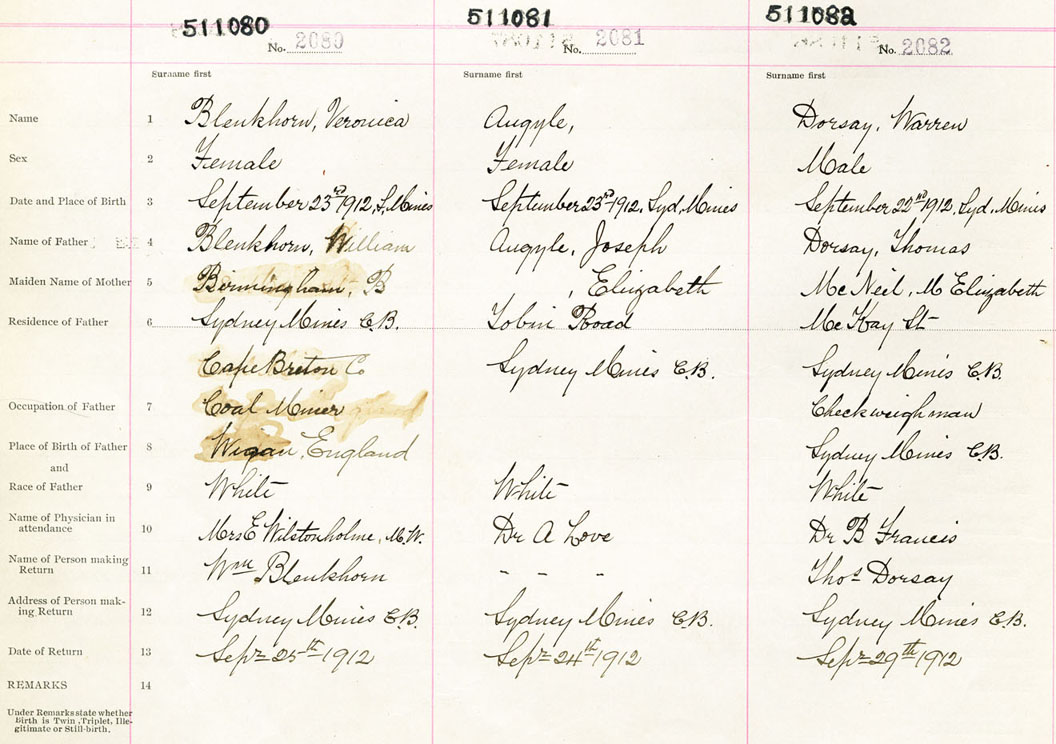 511080 511081 511082
No. 2080 No. 2081 No. 2082
Surname first Surname first Surname first
Name 1 Blenkhorn, Veronica Augyle, Dorsay, Warren
Sex 2 Female Female Male
Date and Place of Birth 3 September 23rd 1912, S, Mines September 23rd 1912, Syd, Mines September 22nd 1912, Syd, Mines
Name of Father 4 Blenkhorn, William Augyle, Joseph Dorsay, Thomas
Maiden Name of Mother 5 Birmingham, B , Elizabeth McNeil, M Elizabeth
Residence of Father 6 Sydney Mines C.B. Tobin Road McKay St
Cape Breton Co Sydney Mines C.B. Sydney Mines C.B.
Occupation of Father 7 Coal Miner Checkweighman
Place of Birth of Father 8 Wigan, England Sydney Mines C.B.
and
Race of Father 9 White White White
Name of Physician in
attendance 10 Mrs E Wilstonholme, M.W. Dr A Love Dr B Francis
Name of Person making
Return 11 Wm Blenkhorn - - - Thos Dorsay
Address of Person mak-
ing Return 12 Sydney Mines C.B. Sydney Mines C.B. Sydney Mines C.B.
Date of Return 13 Sept 25th 1912 Sept 24th 1912 Sept 29th 1912
REMARKS 14
Under Remarks state whether
Birth is Twin, Triplet, Ille-
gitimate or Still-birth.